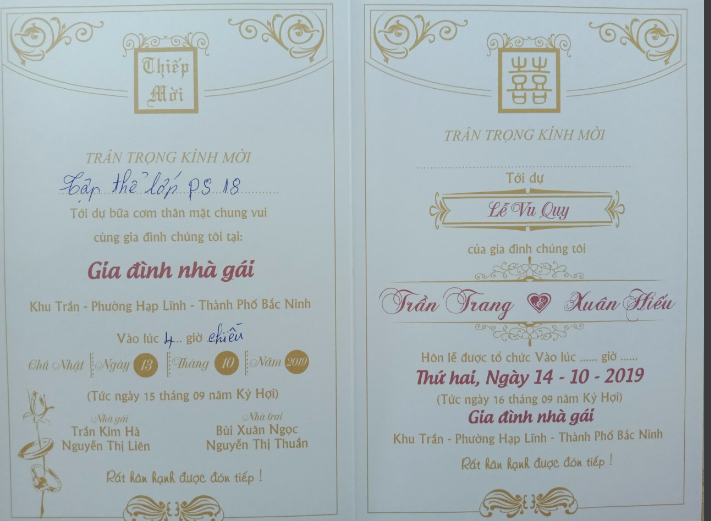 Thiếp
Mời
TRÂN TRỌNG KÍNH MỜI
Tập thể lớp PS 18
Tới dự bữa cơm thân mật chung vui
cùng gia đình chúng tôi tại:
Gia đình nhà gái
Khu Trần - Phường Hạp Lĩnh - Thành Phố Bắc Ninh
Vào lúc 4 giờ chiều
Chủ Nhật Ngày 13 Tháng 10 Năm 2019
(Tức ngày 15 tháng 09 năm Kỷ Hợi)
Nhà gái Nhà trai
Trần Kim Hà Bùi Xuân Ngọc
Nguyễn Thị Liên Nguyễn Thị Thuần
Rất hân hạnh được đón tiếp !
囍
TRÂN TRỌNG KÍNH MỜI
Tới dự
Lễ Vu Quy
của gia đình chúng tôi
Trần Trang Xuân Hiếu
Hôn lễ được tổ chức Vào lúc ...... giờ ......
Thứ hai, Ngày 14 - 10 - 2019
(Tức ngày 16 tháng 09 năm Kỷ Hợi)
Gia đình nhà gái
Khu Trần - Phường Hạp Lĩnh - Thành Phố Bắc Ninh
Rất hân hạnh được đón tiếp !